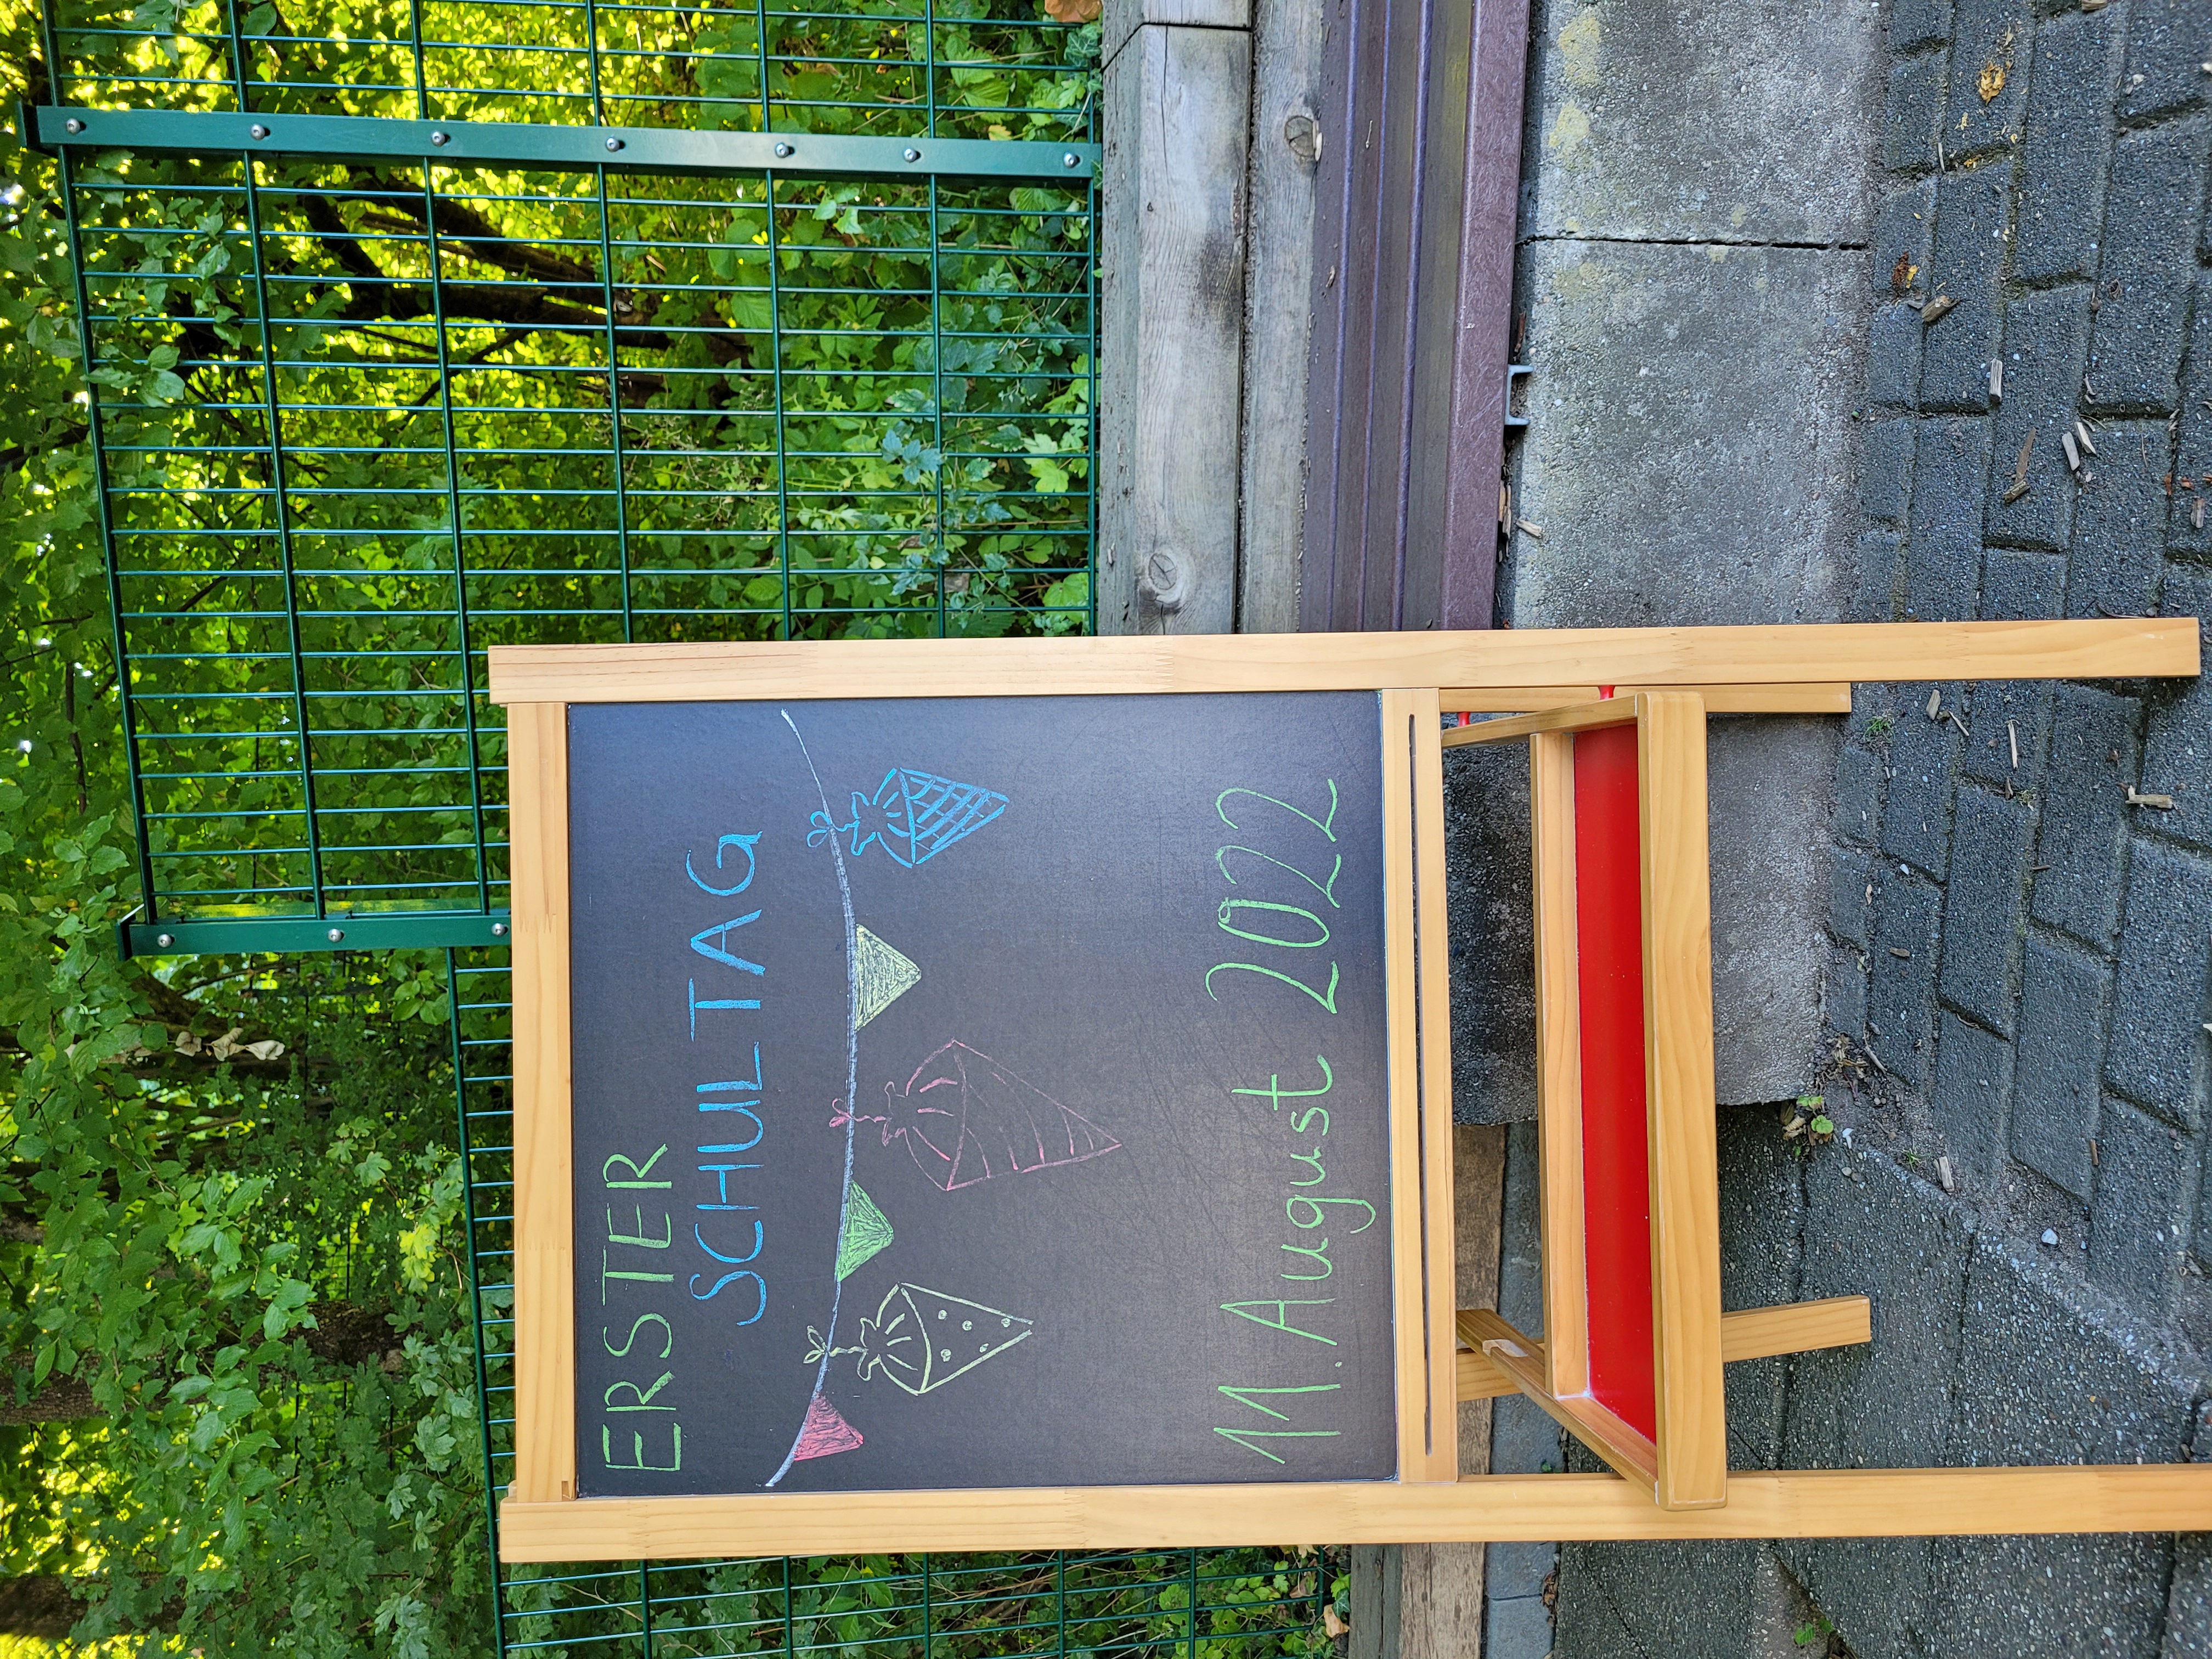 ERSTER
SCHULTAG
11. August 2022